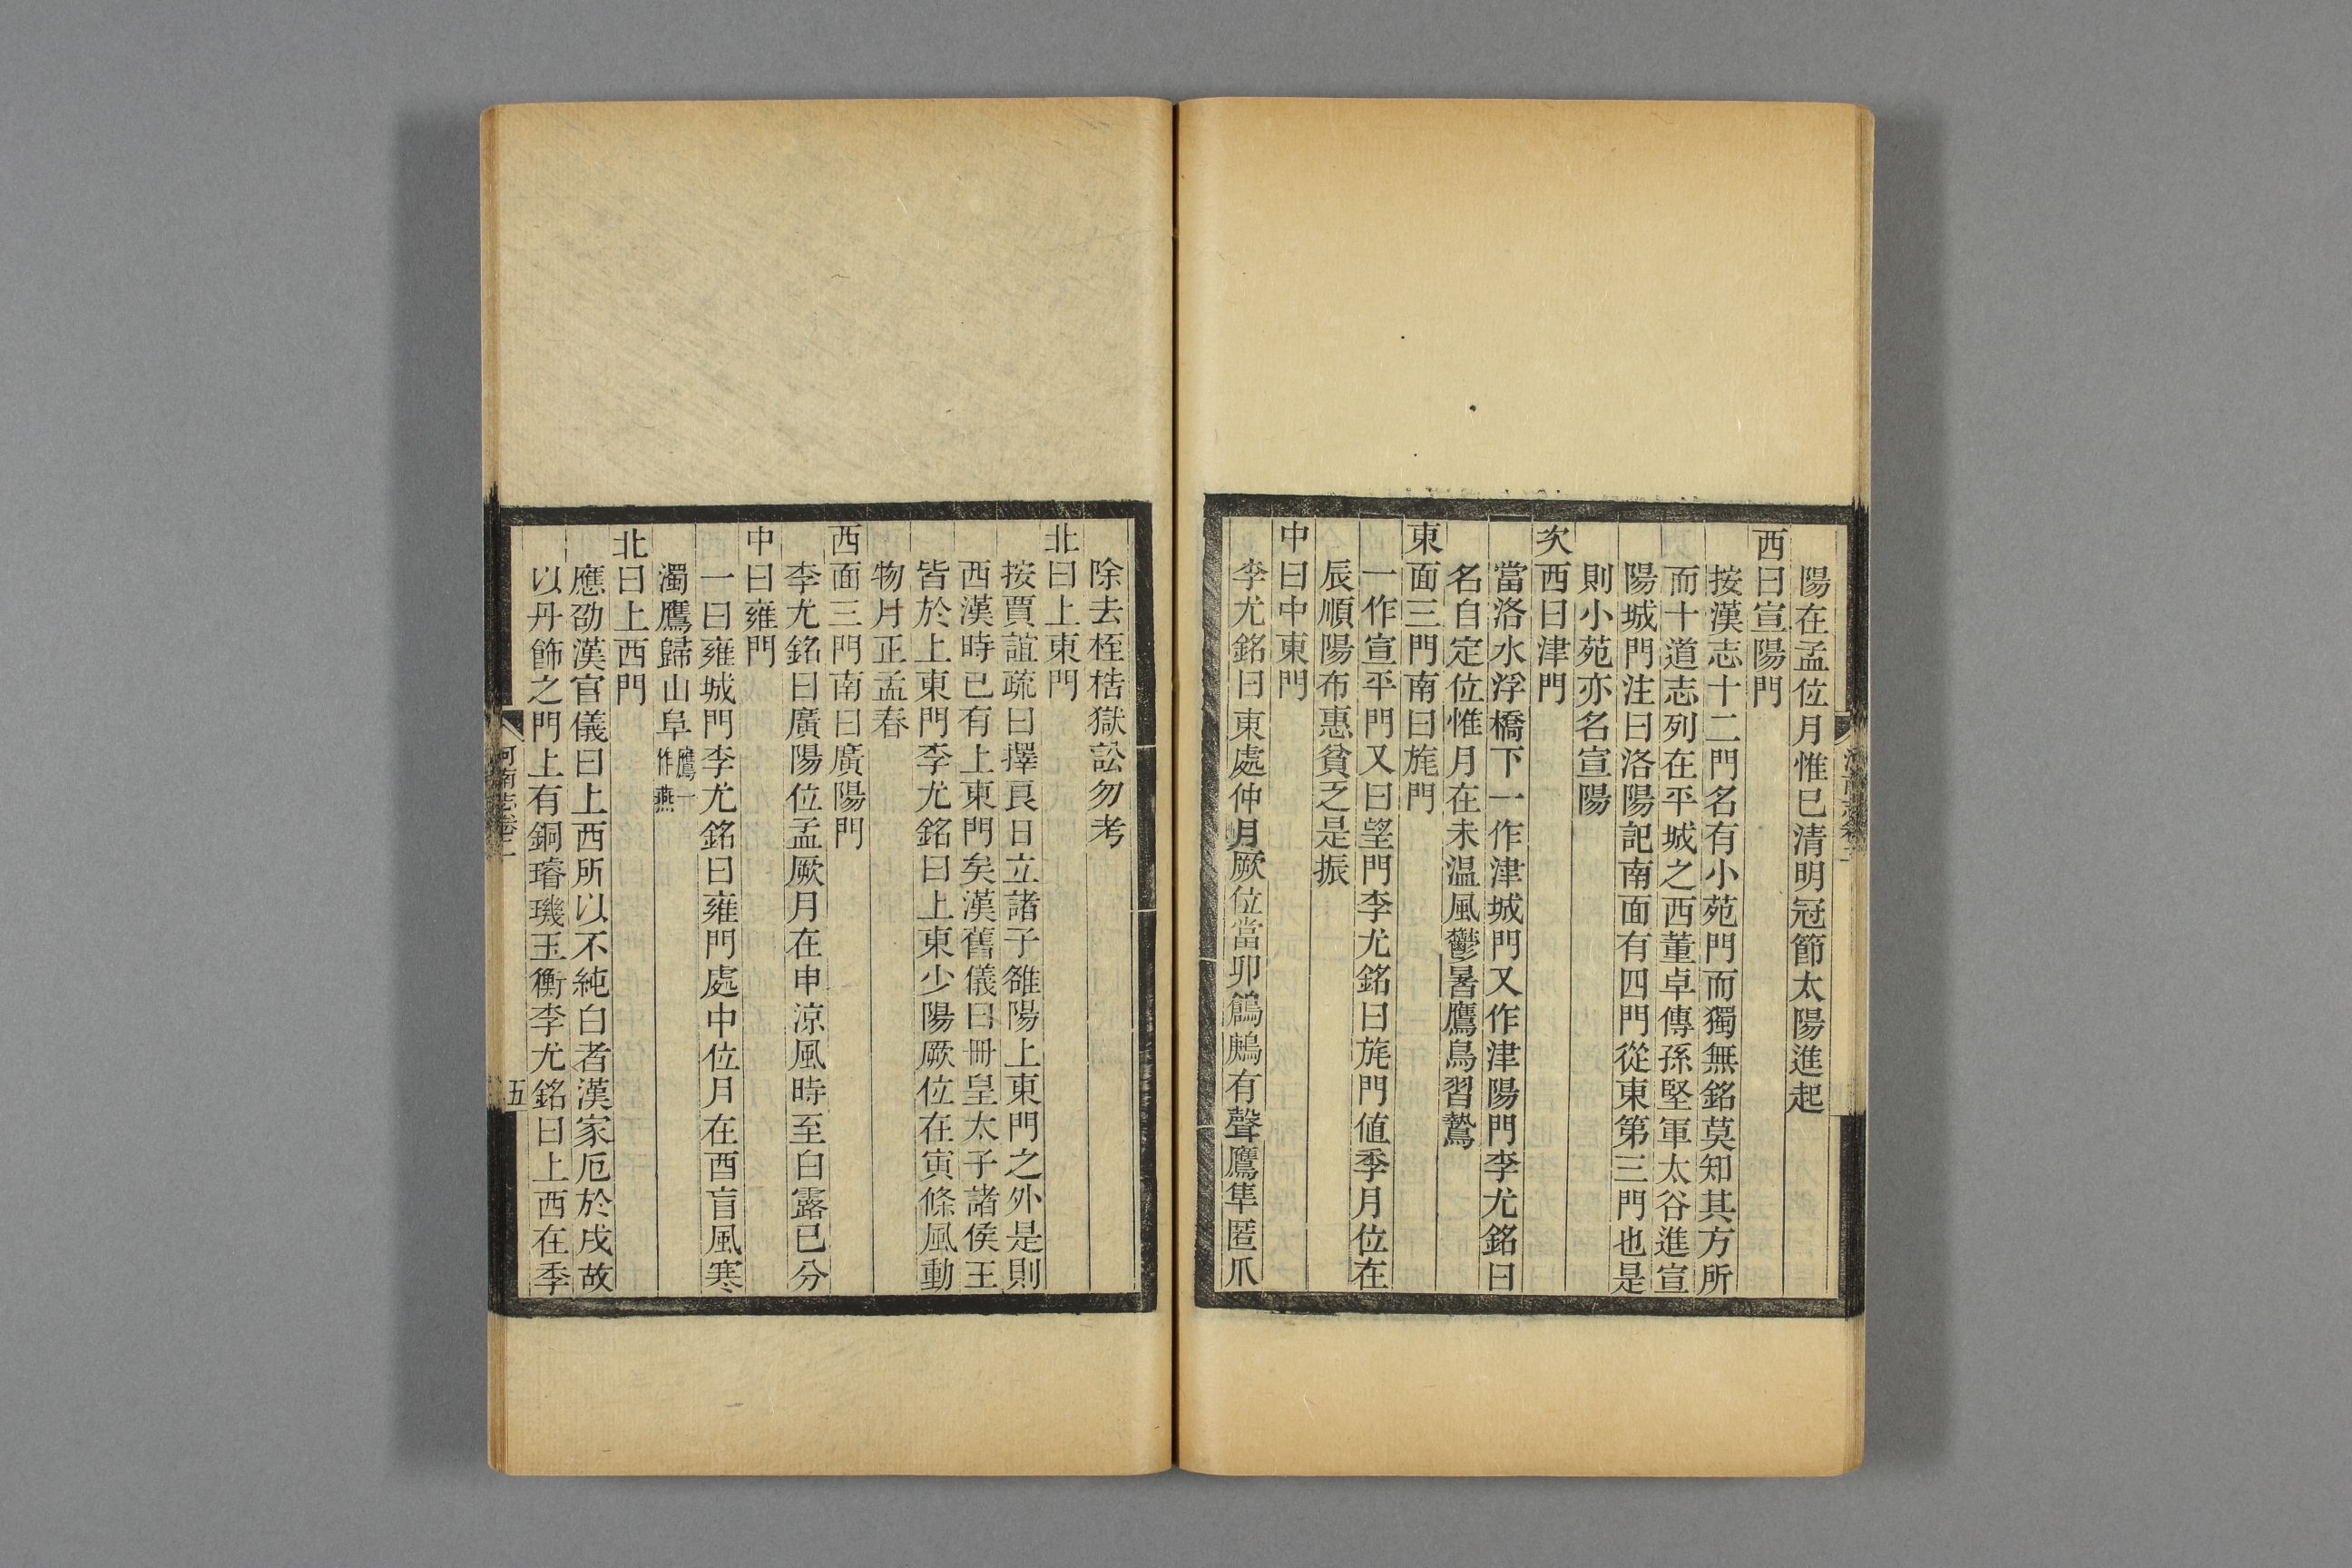 陽在孟位月惟巳清明冠節太陽進起
西曰宣陽門
按漢志十二門名有小苑門而獨無銘莫知其方所
而十道志列在平城之西董卓傳孫堅軍太谷進宣
陽城門注曰洛陽記南面有四門從東第三門也是
則小苑亦名宣陽
次西曰津門
當洛水浮橋下一作津城門又作津陽門李尤銘曰
名自定位惟月在未温風鬱暑鷹鳥習鷙
東面三門南曰旄門
一作宣平門又曰望門李尤銘曰旄門値季月位在
辰順陽布惠貧乏是振
中曰中東門
李尤銘曰東處仲月厥位當卯鶬鷓有聲鷹隼匿爪
除去桎梏獄訟勿考
北曰上東門
按賈誼疏曰擇良日立諸子雒陽上東門之外是則
西漢時已有上東門矣漢舊儀曰冊皇太子諸侯王
皆於上東門李尤銘曰上東少陽厥位在寅條風動
物月正孟春
西面三門南曰廣陽門
李尤銘曰廣陽位孟厥月在申涼風時至白露已分
中曰雍門
一曰雍城門李尤銘曰雍門處中位月在酉盲風寒
濁鷹歸山阜鷹一作燕
北曰上西門
應劭漢官儀曰上西所以不純白者漢家厄於戌故
以丹飾之門上有銅璿璣玉衡李尤銘曰上西在季
河南志卷二
五